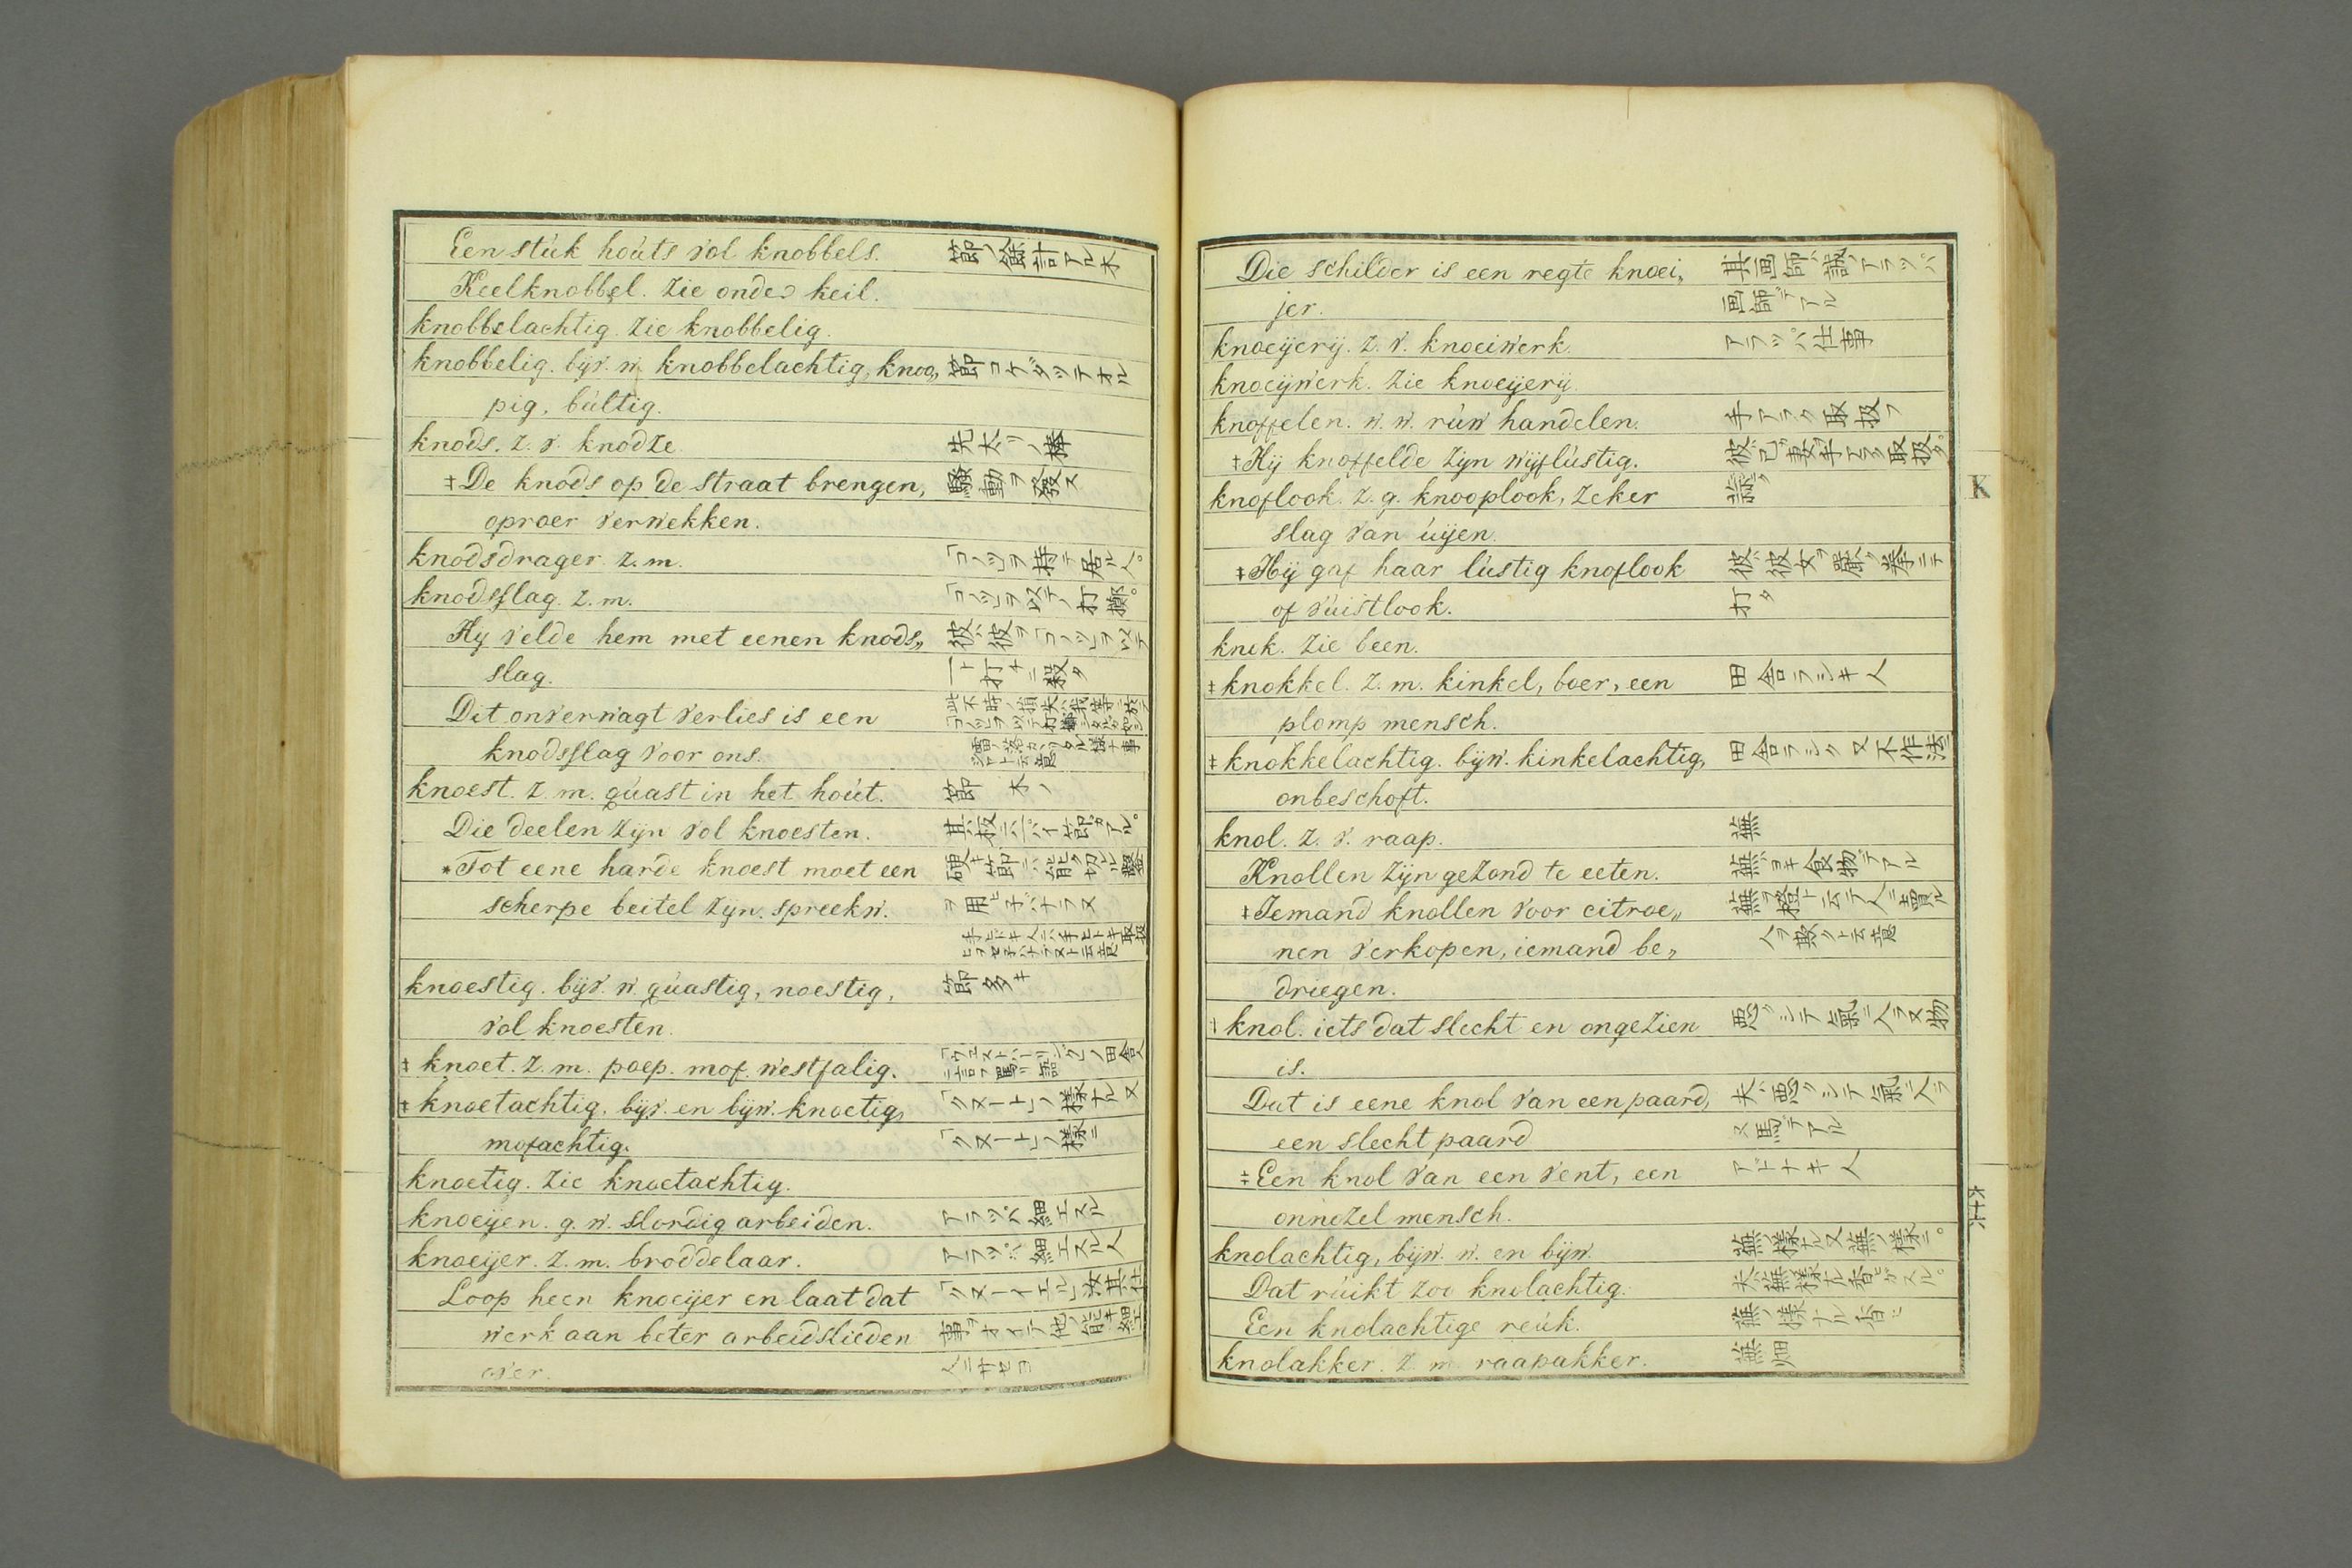 Een stúk hoúts vol knobbels. 節ノ餘計アル木
Keelknobbel. zie onder keil.
knobbelachtig. zie knobbelig.
knobbelig. bijv. w. knobbelachtig, knoo„ 節コケダツテオル
pig, búltig.
knods. z. v. knodze 先太リノ棒
‡De knods op de straat brengen, 騒動ヲ發ス
oproer verwekken.
knodsdrager. z. m. 「コノツヲ持テ居ル人。
knodsslag. z. m. 「コノツヲ以テノ打擲。
Hy velde hem met eenen knods„ 彼ハ彼ヲ「コノツヲ以テ
slag. 一ト打ナニ殺タ
Dit onverwagt verlies is een
knodsslag voor ons.
knoest. z. m. qúast in het hoút. 節 木ノ
Die deelen zijn vol knoesten. 其板ニハ一パイ節ガアル。
*Tot eene harde knoest moet een 硬キ節ニハ能ク切ル鑿
scherpe beitel zijn. spreekw. ヲ用ヒ子バナラヌ
knoestig. bijv. w. qúastig, noestig, 節多キ
vol knoesten.
‡ knoet. z. m. poep. mof. westfalig.
‡ knoetachtig. bijv. en bijw. knoetig, 「クヌートヒノ様ナル又
mofachtig. 「クヌートヒノ様ニ
knoetig. zie knoetachtig.
knoeijen. g. w. slordig arbeiden. アラッパ細エスル
knoeijer. z. m. broddelaar. アラッパ細エスル人
Loop heen knoeijer en laat dat 「クヌーイエル汝其仕
werk aan beter arbeidslieden 事ヲオイテ他ノ能キ細工
over. 人ニサセヨ
Die schilder is een regte knoei„ 其画師ハ誠ノアラッパ
jer. 画師デアル
knoeijerij. z. v. knoeiwerk. アラッパ仕事
knoeijwerk. zie knoeijerij.
knoffelen. w. w. rúw handelen. 手アラク取扱フ
‡Hij knoffelde zijn wijf lústig. 彼ハ己ガ妻ヲ手アラク取扱タ。
knoflook. z. g. knooplook, zeker
slag van úijen.
‡Hij gaf haar lústig knoflook 彼ハ彼女ヲ嚴ク拳ニテ
of vúistlook. 打タ
knik. zie been.
‡ knokkel. z. m. kinkel, boer, een 田舎ラシキ人
plomp mensch.
‡ knokkelachtig. bijw. kinkelachtig, 田舎ラシク又不作法
onbeschoft.
knol. z. v. raap. 蕪
Knollen zijn gezond te eeten. 蕪ハヨキ食物デアル
‡Iemand knollen voor citroe„ 蕪ヲ橙ト云テ人ニ賣ル
nen verkopen, iemand be„ 人ヲ欺クト云意
driegen.
‡ knol. iets dat slecht en ongezien 悪クシテ氣ニ入ラヌ物
is.
Dat is eene knol van een paard, 夫ハ悪クシテ氣ニ入ラ
een slecht paard ヌ馬デアル
‡Een knol van een vent, een アドナキ人
onnozel mensch.
knolachtig, bijw. w. en bijw. 蕪ノ様ナル又蕪ノ様ニ。
Dat rúikt zoo knolachtig. 夫ハ蕪ノ様ナル香ヒガスル。
Een knolachtige reúk. 蕪ノ様ナル香ヒ
knolakker. z. m. raapakker. 蕪畑
K